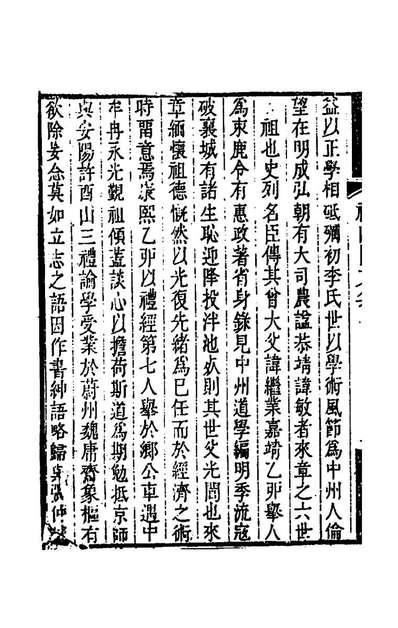 益以正學相砥礪初李氏世以學術風節爲中州人倫
望在明成弘朝有大司農諡恭靖諱敏者來章之六世
祖也史列名臣傳其曾大父諱繼業嘉靖乙卯舉人
爲束鹿令有惠政著省身錄見中州道學編明季流寇
破襄城有諸生恥迎降投泮池死則其世父光閭也來
章緬懷祖德慨然以光復先緒爲已任而於經濟之術
時畱意焉康熙乙卯以禮經第七人舉於鄉公車遇中
牟冉永光覲祖傾蓋談心以擔荷斯道爲期勉抵京師
與安陽許酉山三禮論學受業於蔚州魏庸齋象樞有
欲除妄念莫如立志之語因作書紳語略歸